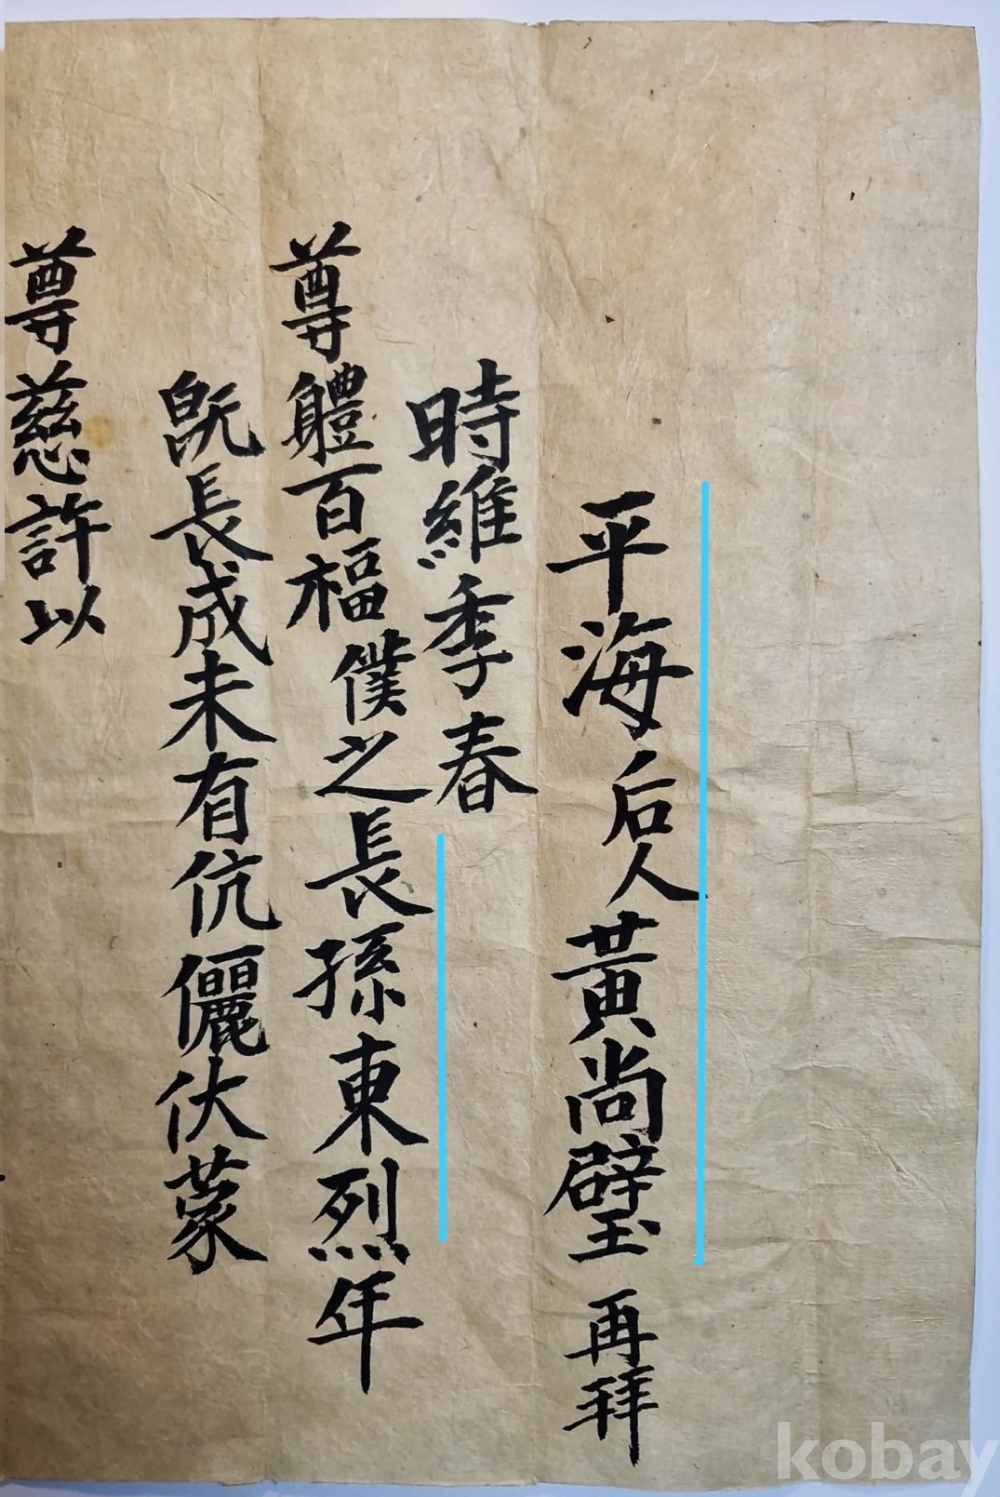 平海后人黃尚璧 再拜
時維季春
尊體百福僕之長孫東烈年
旣長成未有伉儷伏蒙
尊慈許以
kobay